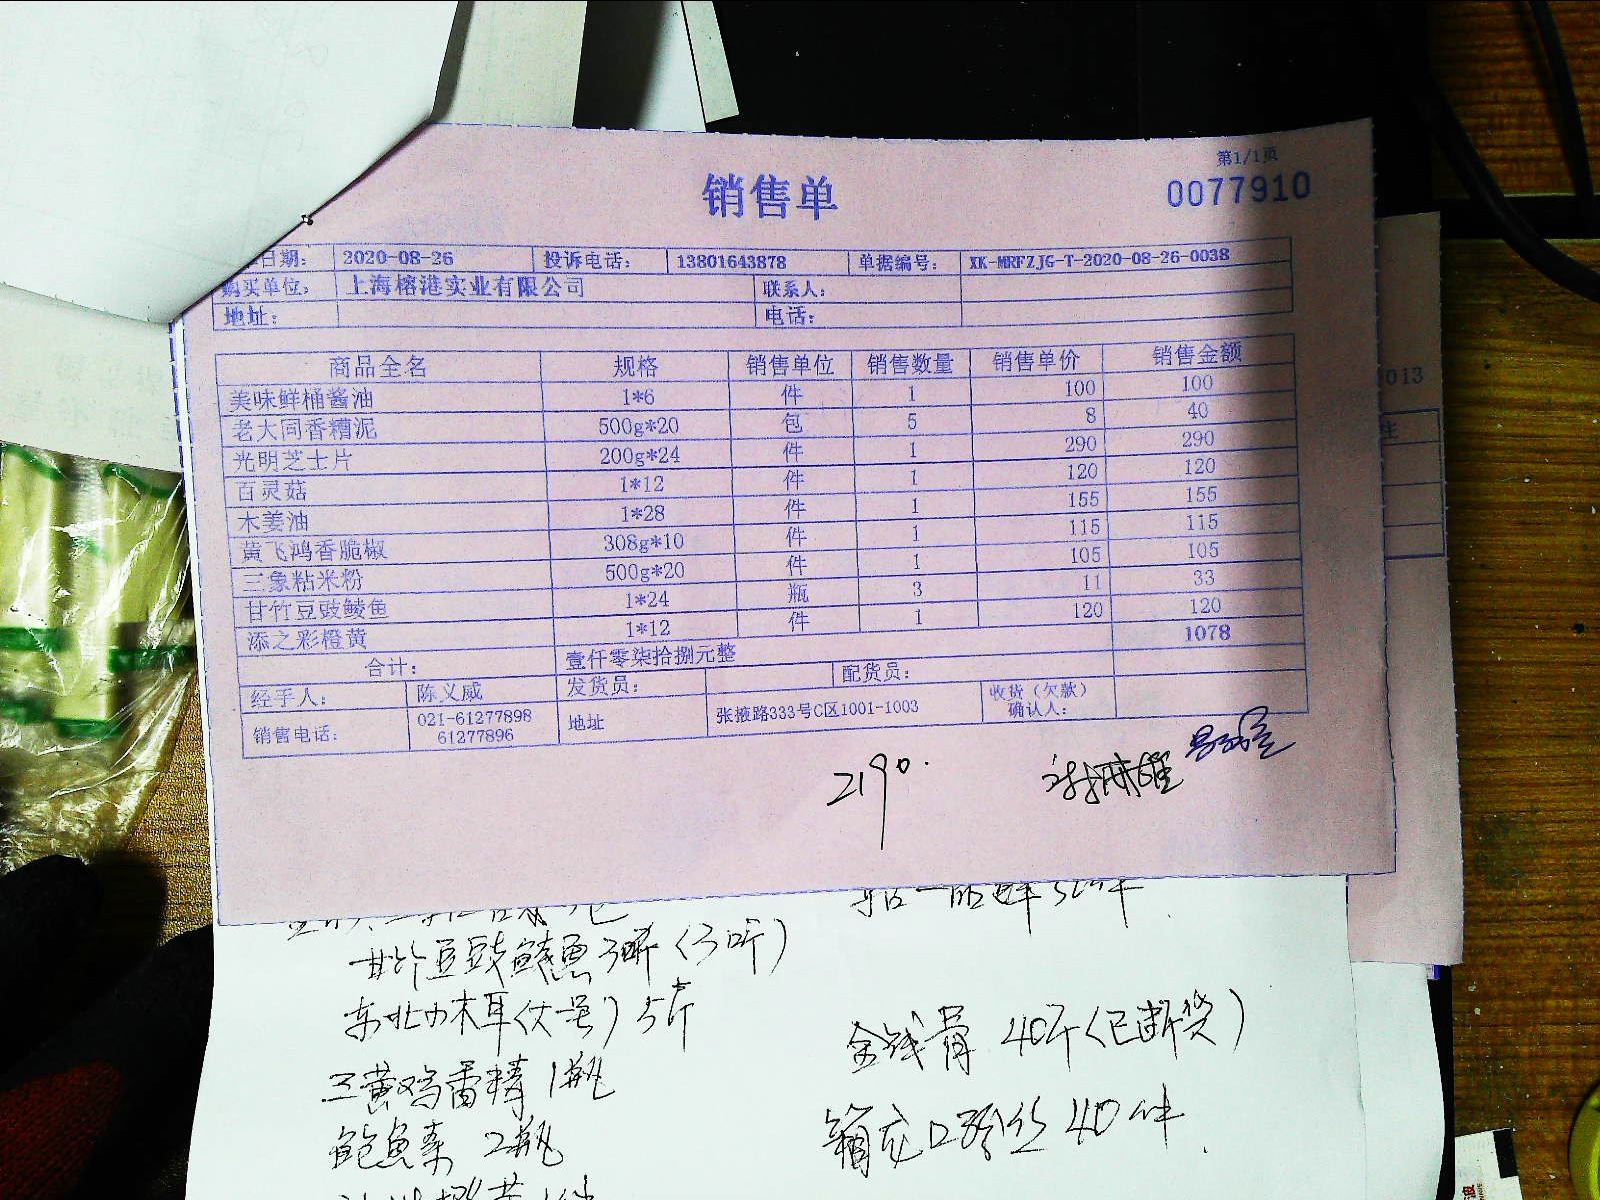 第1/1页
销售单
0077910
日期: 2020-08-26 投诉电话: 13801643878 单据编号: XK-MRFZJG-T-2020-08-26-0038
购买单位: 上海榕港实业有限公司 联系人:
地址: 电话:
商品全名 规格 销售单位 销售数量 销售单价 销售金额
美味鲜桶酱油 1*6 件 1 100 100
老大同香糟泥 500g*20 包 5 8 40
光明芝士片 200g*24 件 1 290 290
百灵菇 1*12 件 1 120 120
木姜油 1*28 件 1 155 155
黄飞鸿香脆椒 308g*10 件 1 115 115
三象粘米粉 500g*20 件 1 105 105
甘竹豆豉鲮鱼 1*24 瓶 3 11 33
添之彩橙黄 1*12 件 1 120 120
合计: 壹仟零柒拾捌元整 1078
经手人: 陈义威 发货员: 配货员:
销售电话: 021-61277898 61277896 地址 张掖路333号C区1001-1003 收货(欠款)确认人:
2190.
013
甘竹豆豉鲮鱼 (3听)
东北小木耳(大号) 5斤
王黄鸡香精 1瓶
鲍鱼素 2瓶
金钱骨 40斤(已断货)
龙口粉丝 40件